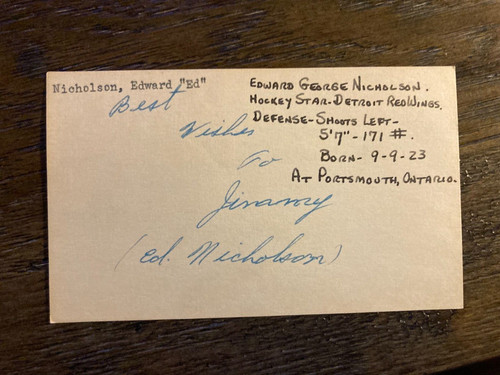 Nicholson, Edward "Ed"
Best
Wishes
To
Jimmy
(Ed. Nicholson)
EDWARD GEORGE NICHOLSON.
HOCKEY STAR-DETROIT REDWINGS.
DEFENSE-SHOOTS LEFT-
5'7"-171 #.
BORN- 9-9-23
AT PORTSMOUTH, ONTARIO.